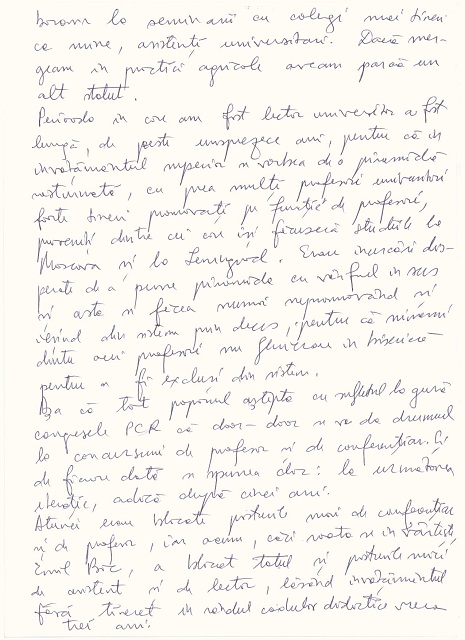 lo seminarii cu colegi mai tineri
ca mine, asistenți universitari. Dacă mer-
geam in practică agricolă aveam parcă un
alt statut.
Perioada in care am fost lector universitar a fost
lungă, de peste unsprezece ani, pentru că in
invatămantul superior se vorbea de o piramidă
răsturnată, cu prea multi profesori universitari
forte tineri promovati pe funcție de profesori,
proveniți dintre cei care isi făcuseră studiile la
Moscova si la Leningrad. Erau incercări dis-
perate de a pune piramida cu varful in sus
si asta se făcea numai nepromovand si
iesind din sistem prin deces, pentru că nimeni
dintre acei profesori nu in biserică
pentru a fi exclusi din sistem.
Asa că tot poporul astepta cu sufletul la gură
congresele PCR că doar-doar se va da drumul
la concursuri de profesor si de conferentiar. Si
de fiecare dată se spunea doar: la următorea
iteratie, adică după cinci ani.
Atunci erau blocate posturile mari de conferentiar
si de profesor, iar acum, căci roata se invărteste
Emil Boc, a blocat totul si posturile mici
de asistent si de lector, lăsând invatămantul
fără tineret in randul cadrelor didactice vreo
trei ani.